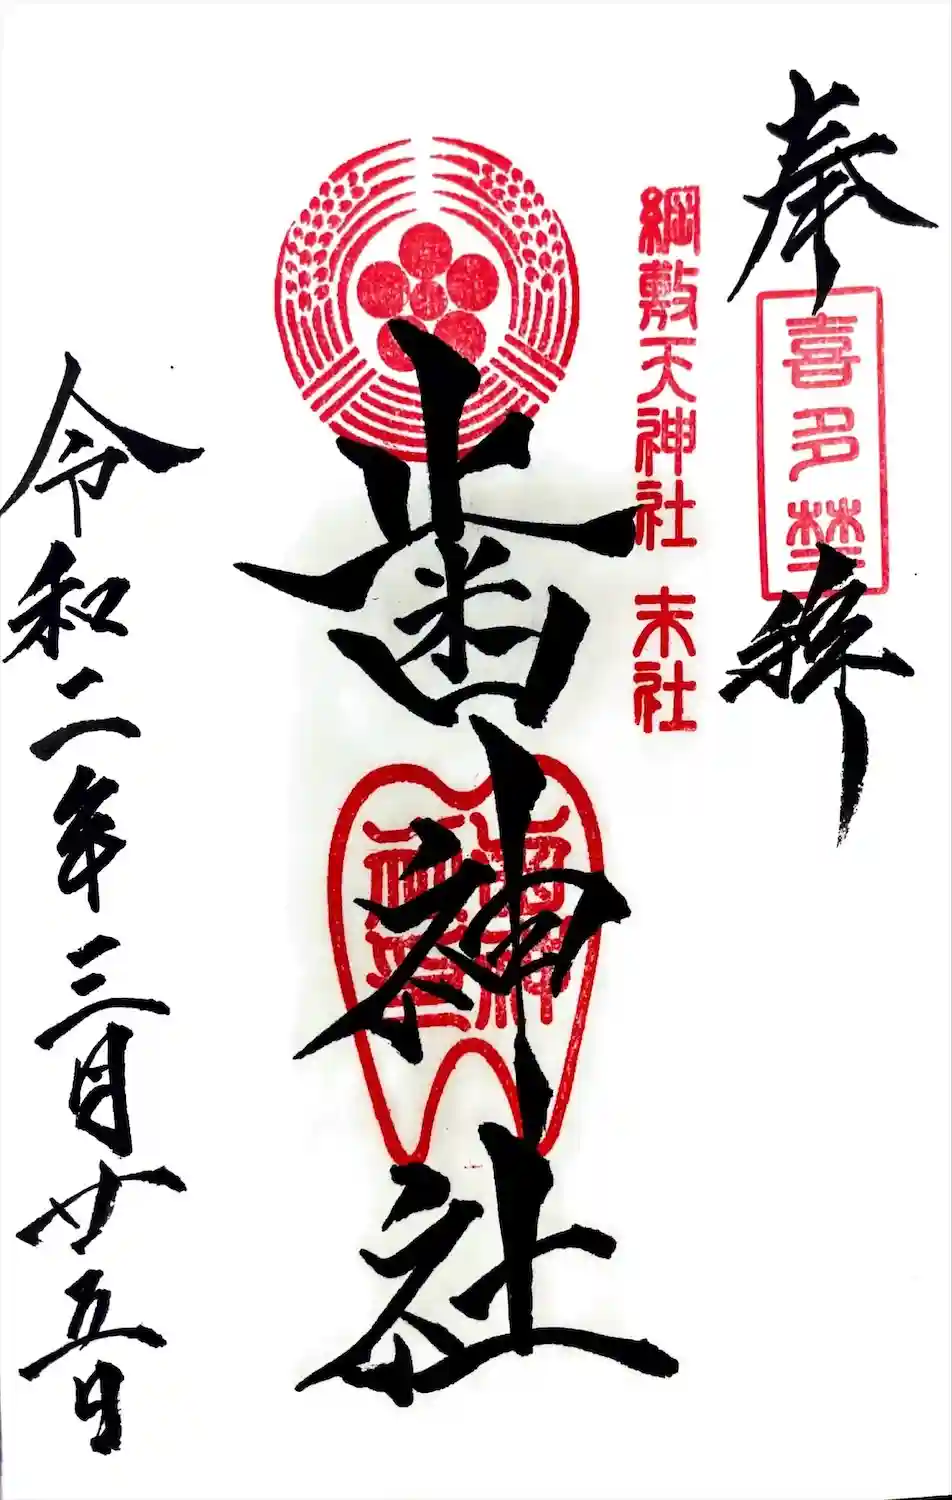 奉拝
喜多埜
綱敷天神社 末社
歯神社
令和二年三月廿五日